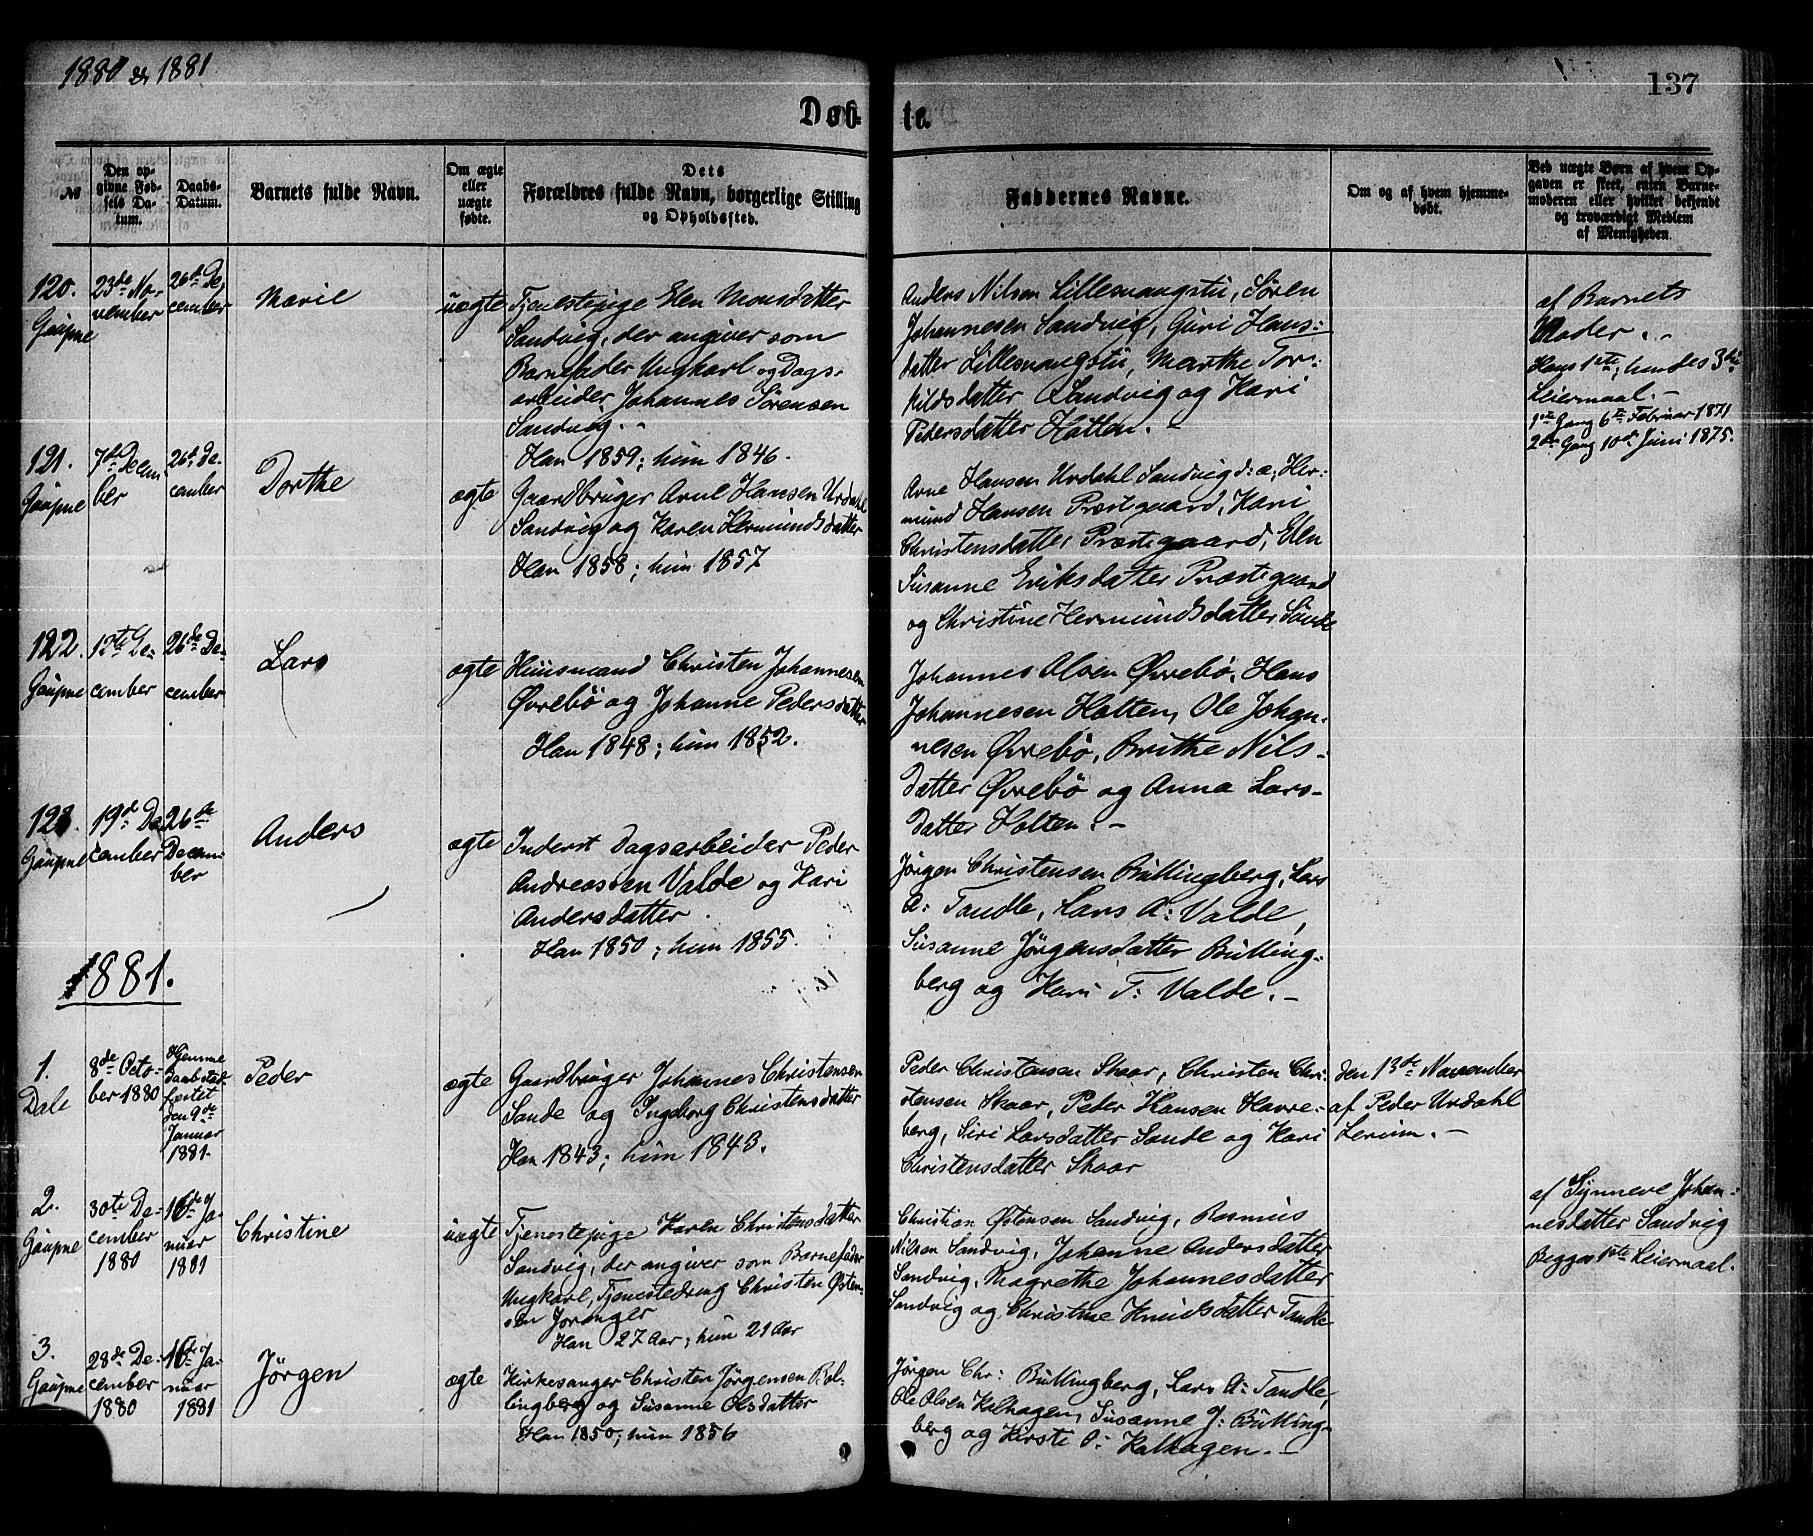 1880 og 1881
137
Døb-
te.
№
Den op-
givne Fød-
sels Da-
tum.
Daabs-
Datum.
Barnets fulde Navn.
Om ægte
eller
uægte
fødte.
Dets
Forældres fulde Navn, borgerlige Stilling
og Opholdssted.
Faddernes Navne.
Om og af hvem hjemme-
døbt.
Ved uægte Børn af hvem Op-
gaven er skeet, enten Barne-
moderen eller hvilket bekjendt
og troværdigt Medlem
af Menigheden.
120.
Gaupne
23de No-
vember
26de De-
cember
Marie
uægte
Tjenestepige Elen Monsdatter
Sandvig, der angiver som
Barnefader Ungkarl og Dags-
arbeider Johannes Sørensen
Sandvig. -
Han 1859; hun 1846.
Anders Nilsen Lillesvangstu, Søren
Johannesen Sandvig, Guri Hans-
datter Lillesvangstu, Marthe Tor-
kildsdatter Sandvig og Kari
Pedersdatter Hatten. -
af Barnets
Moder. -
Hans 1ste; hendes 3die
Leiermaal. -
1ste Gang 6te Februar 1871
2den Gang 10de Juni 1875.
121.
Gaupne
7de Decem-
ber
26de De-
cember
Dorthe
ægte
Gaardbruger Arne Hansen Urdahl
Sandvig og Karen Hermundsdatter
Han 1858; hun 1857
Arne Hansen Urdahl Sandvig d: æ, Her-
mund Hansen Præstegaard, Kari
Christensdatter Præstegaard, Elen
Susanne Eriksdatter Præstegaard
og Christine Hermundsdatter Sande
122.
Gaupne
12te De-
cember
26de De-
cember
Lars
ægte
Huusmand Christen Johannesen
Øvrebø og Johanne Pedersdatter
Han 1848; hun 1852.
Johannes Olsen Øvrebø, Hans
Johannesen Holten, Ole Johan-
nesen Øvrebø, Brithe Nils-
datter Øvrebø og Anna Lars-
datter Holten. -
123.
Gaupne
19de De-
cember
26de
Decem-
ber
Anders
ægte
Inderst Dagsarbeider Peder
Andreassen Valde og Kari
Andersdatter
Han 1850; hun 1855.
Jørgen Christensen Bullingberg, Lars
A: Tandle, Lars A: Valde,
Susanne Jørgensdatter Bulling-
berg og Kari T: Valde. -
1881.
1.
Dale
8de Octo-
ber 1880
Hjemme
daab stad-
fæstet
den 9de
Januar
1881.
Peder
ægte
Gaardbruger Johannes Christensen
Sande og Ingeborg Christensdatter
Han 1843; hun 1843.
Peder Christensen Skaar, Christen Chri-
stensen Skaar, Peder Hansen Havre-
berg, Siri Larsdatter Sande og Kari
Christensdatter Skaar
den 13de November
af Peder Urdahl
Lerum. -
2.
Gaupne
30te De-
cember
1880
16de Ja-
nuar
1881
Christine
uægte
Tjenestepige Karen Christensdatter
Sandvig, der angiver som Barnefader
Ungkarl, Tjenestedreng Christen Østen-
sen Joranger
Han 27 Aar; hun 21 Aar
Christian Østensen Sandvig, Rasmus
Nilsen Sandvig, Johanne Andersdatter
Sandvig, Magrethe Johannesdatter
Sandvig og Christine Knudsdatter Tandle
af Synneve Johan-
nesdatter Sandvig
Begges 1ste Leiermaal.
3.
Gaupne
28de De-
cember
1880
16de Ja-
nuar
1881
Jørgen
ægte
Kirkesanger Christen Jørgensen Bul-
lingberg og Susanne Olsdatter
Han 1850; hun 1856
Jørgen Chr: Bullingberg, Lars A: Tandle,
Ole Olsen Kalhagen, Susanne J: Bulling-
berg og Kirsti O: Kalhagen. -